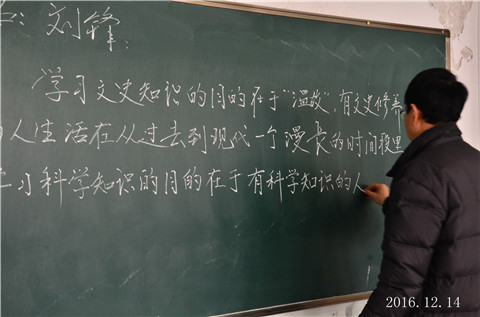 ：刘锋：
学习文史知识的目的在于“温故”，有文史修养
的人生活在从过去到现代一个漫长的时间段里
学习科学知识的目的在于有科学知识的人
2016.12.14